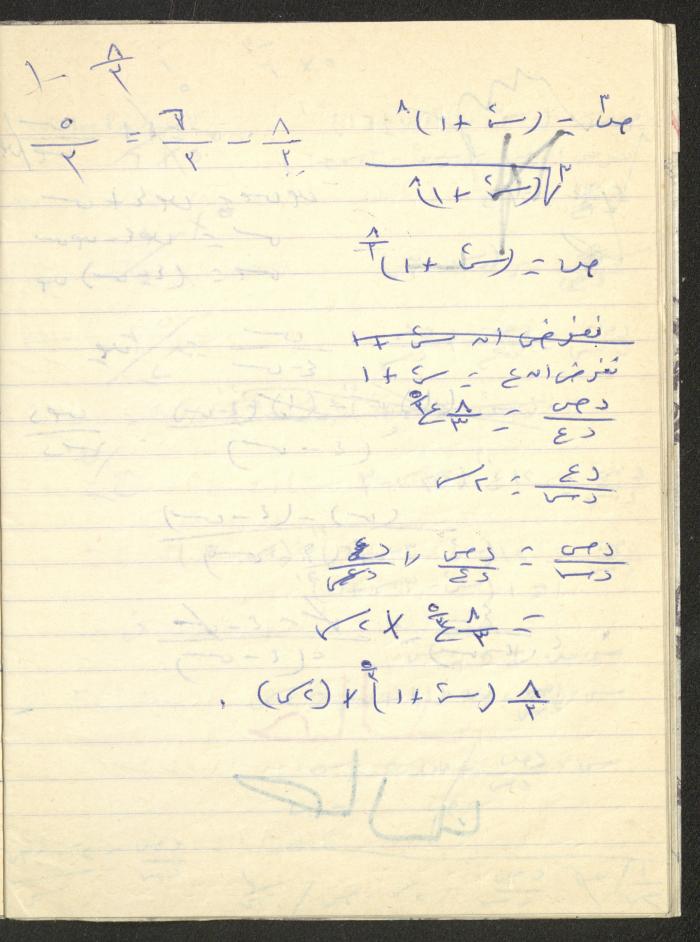 ص٣ = (س٢ + ١)٨
٨/٣ - ١
٨/٣ - ٣/٣ = ٥/٣
٣√(س٢ + ١)٨
ص = (س٢ + ١)٨/٣
نفرض ان س٢ + ١
نفرض ان ع = س٢ + ١
دص/دع = ٨/٣ ع٥/٣
دع/دس = ٢س
دص/دس = دص/دع × دع/دس
= ٨/٣ ع٥/٣ × ٢س
٨/٣ (س٢ + ١)٥/٣ × (٢س)